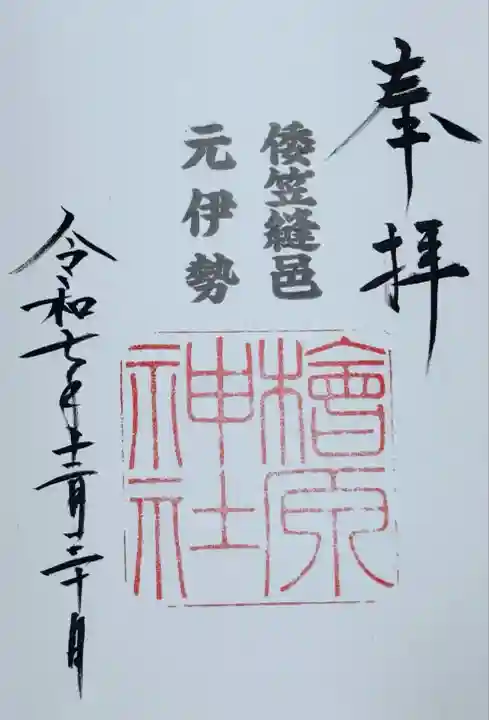 奉拝
倭笠縫邑
元伊勢
檜原
神社
令和七年十二月三十日